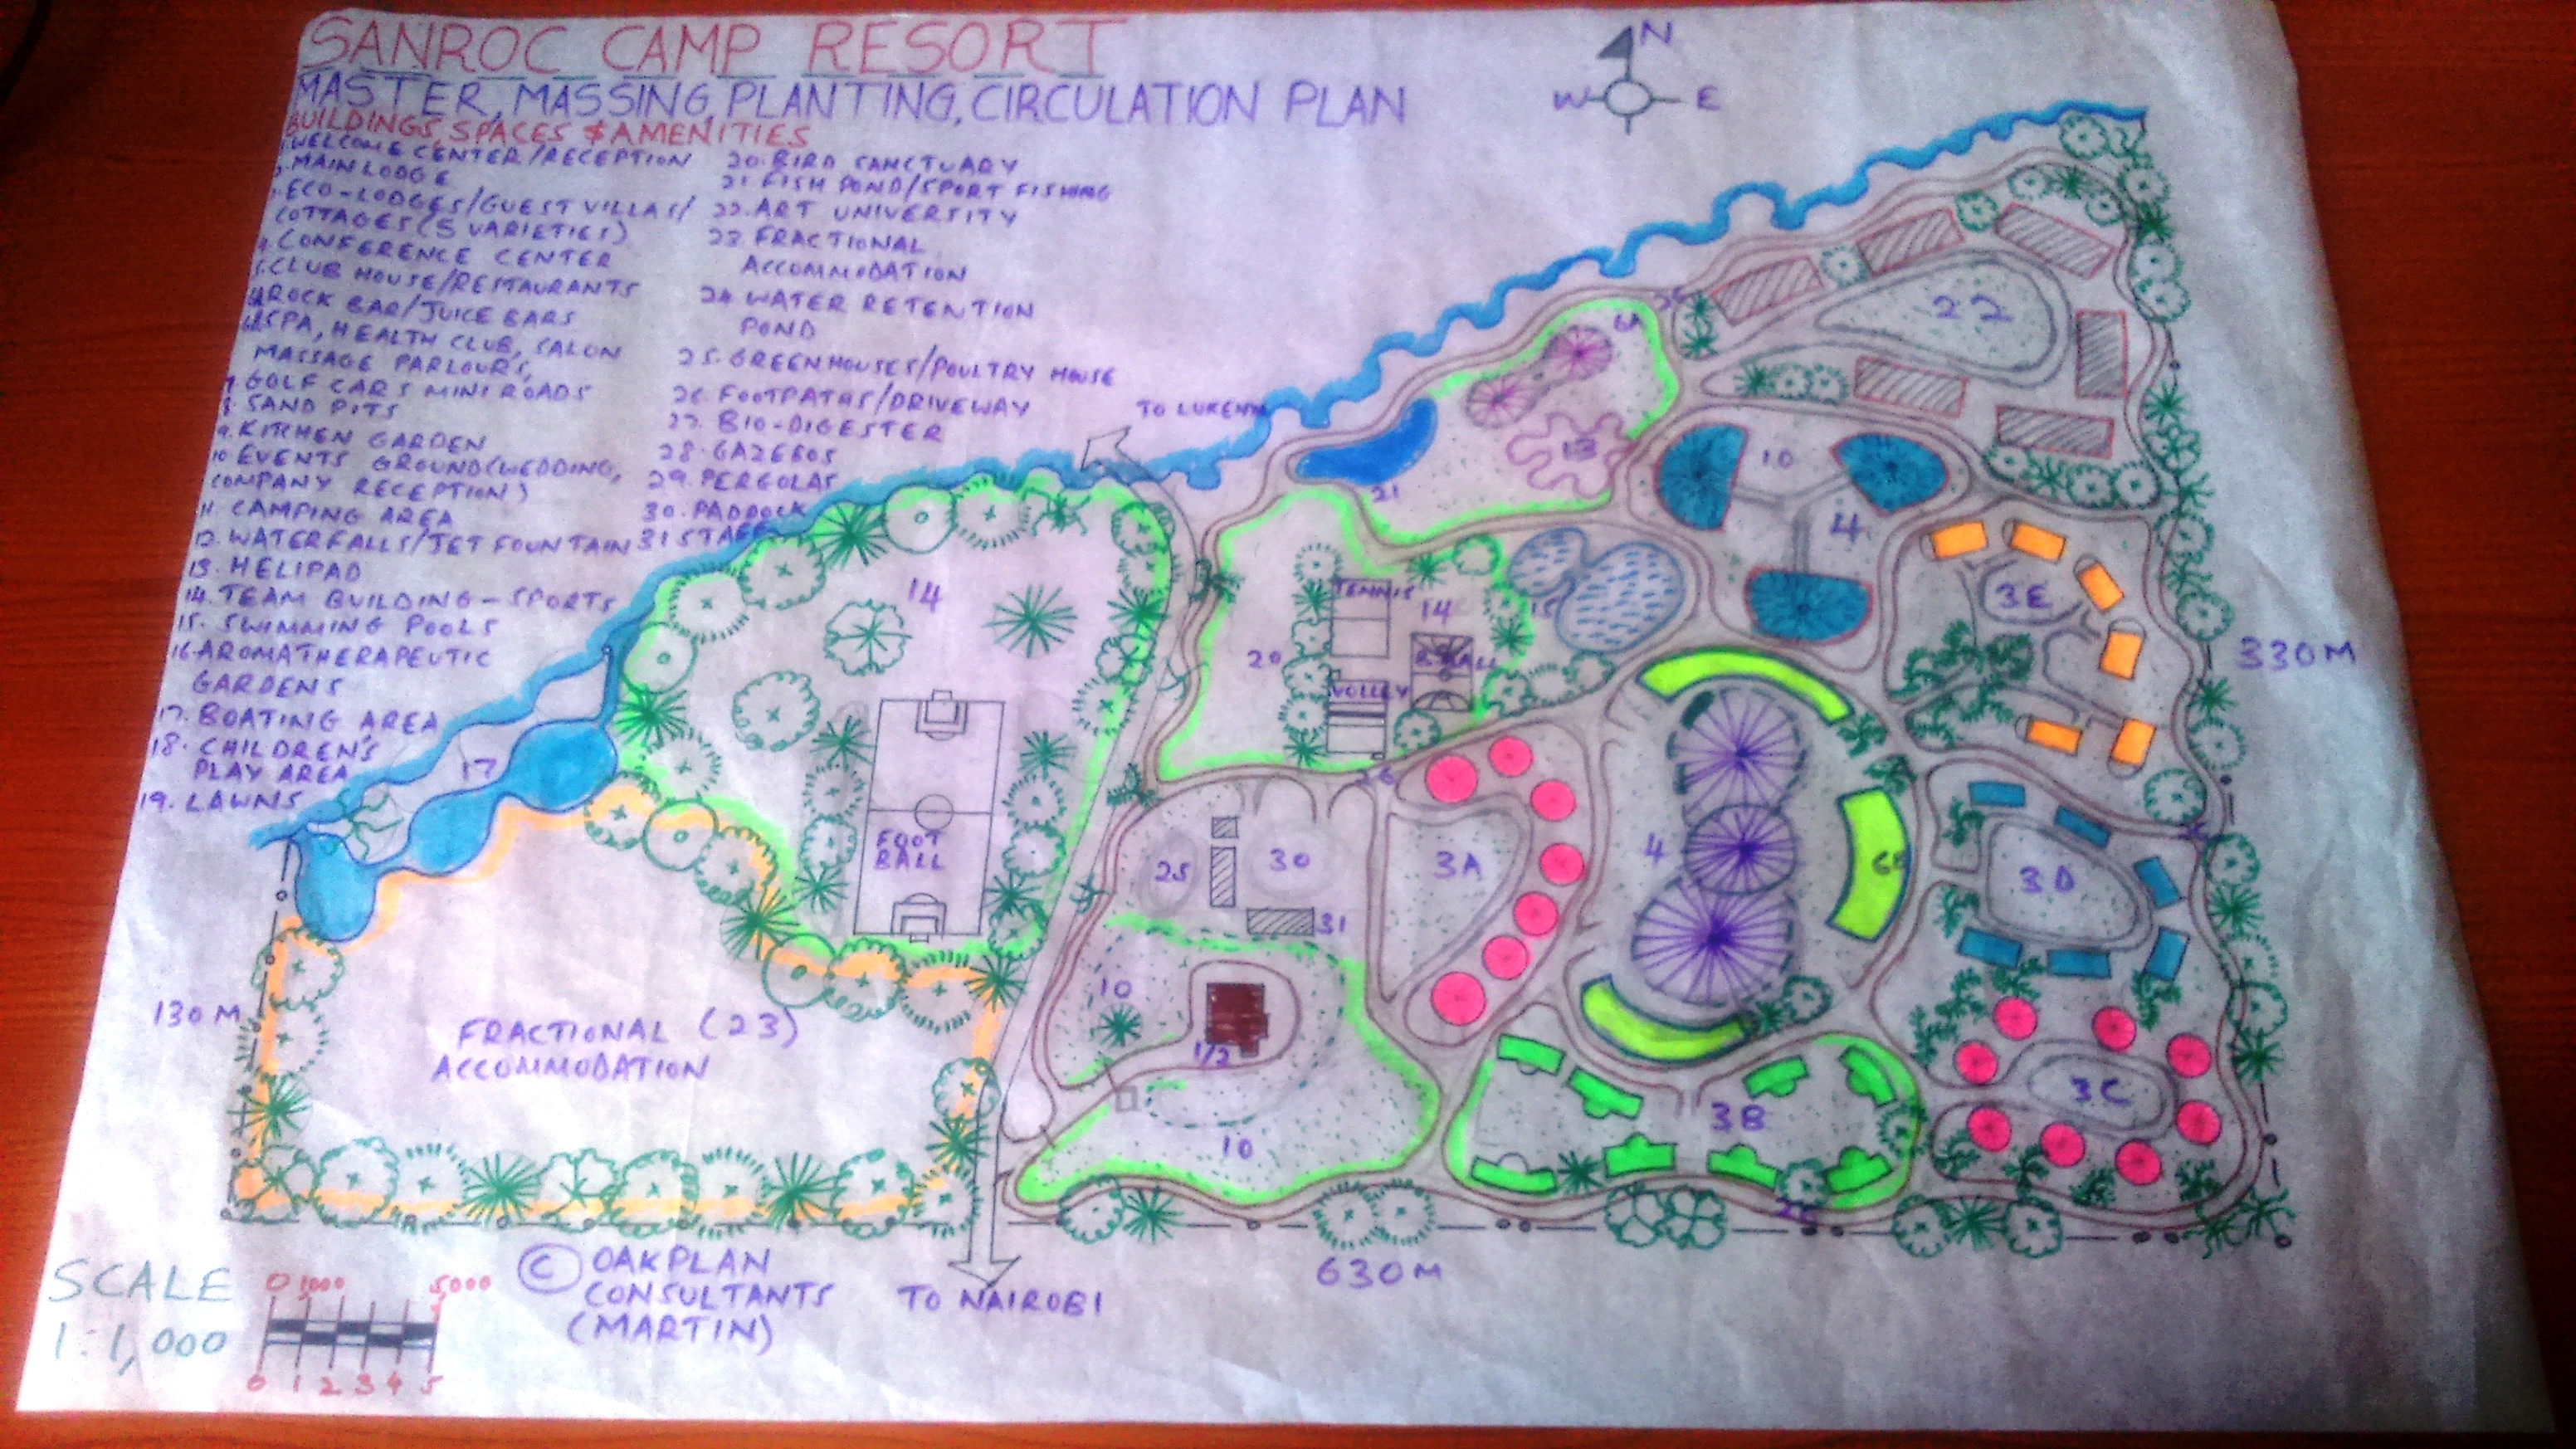 SANROC CAMP RESORT
MASTER, MASSING, PLANTING, CIRCULATION PLAN
BUILDINGS, SPACES & AMENITIES
WELCOME CENTER/RECEPTION
MAIN LODGE
ECO-LODGES/GUEST VILLAS/
COTTAGES (5 VARIETIES)
CONFERENCE CENTER
CLUB HOUSE/RESTAURANTS
ROCK BAR/JUICE BARS
SPA, HEALTH CLUB, SALON
MASSAGE PARLOURS,
7. GOLF CARS MINI ROADS
8. SAND PITS
9. KITCHEN GARDEN
10. EVENTS GROUND (WEDDING,
COMPANY RECEPTION)
11. CAMPING AREA
12. WATERFALLS/JET FOUNTAIN
13. HELIPAD
14. TEAM BUILDING - SPORTS
15. SWIMMING POOLS
16. AROMATHERAPEUTIC
GARDENS
17. BOATING AREA
18. CHILDREN'S
PLAY AREA
19. LAWNS
20. BIRD SANCTUARY
21. FISH POND/SPORT FISHING
22. ART UNIVERSITY
23. FRACTIONAL
ACCOMMODATION
24. WATER RETENTION
POND
25. GREENHOUSES/POULTRY HOUSE
26. FOOTPATHS/DRIVEWAY
27. BIO-DIGESTER
28. GAZEBOS
29. PERGOLAS
30. PADDOCK
31 STAFF
N
W
E
TO LUKENYA
22
6A
13
21
10
4
14
20
TENNIS
14
B.BALL
VOLLEY
15
3E
330M
17
FOOT
BALL
25
30
31
3A
4
6B
3D
10
1/2
10
3B
3C
130 M
FRACTIONAL (23)
ACCOMMODATION
630M
TO NAIROBI
© OAKPLAN
CONSULTANTS
(MARTIN)
SCALE
1:1,000
0 1000 5000
0 1 2 3 4 5